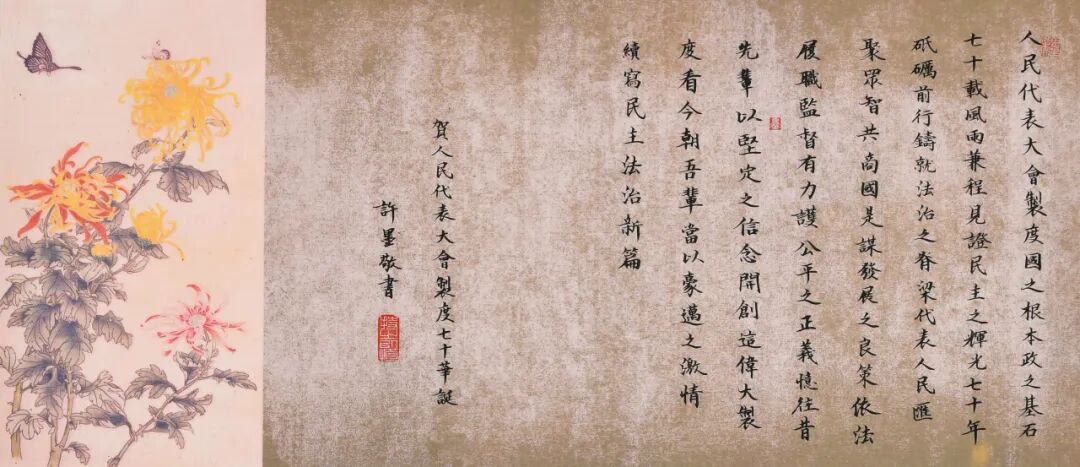 人民代表大會製度國之根本政之基石
七十載風雨兼程見證民主之輝光七十年
砥礪前行鑄就法治之脊梁代表人民匯
聚眾智共商國是謀發展之良策依法
履職監督有力護公平之正義憶往昔
先輩以堅定之信念開創這偉大製
度看今朝吾輩當以豪邁之激情
續寫民主法治新篇
賀人民代表大會製度七十華誕
許墨敬書